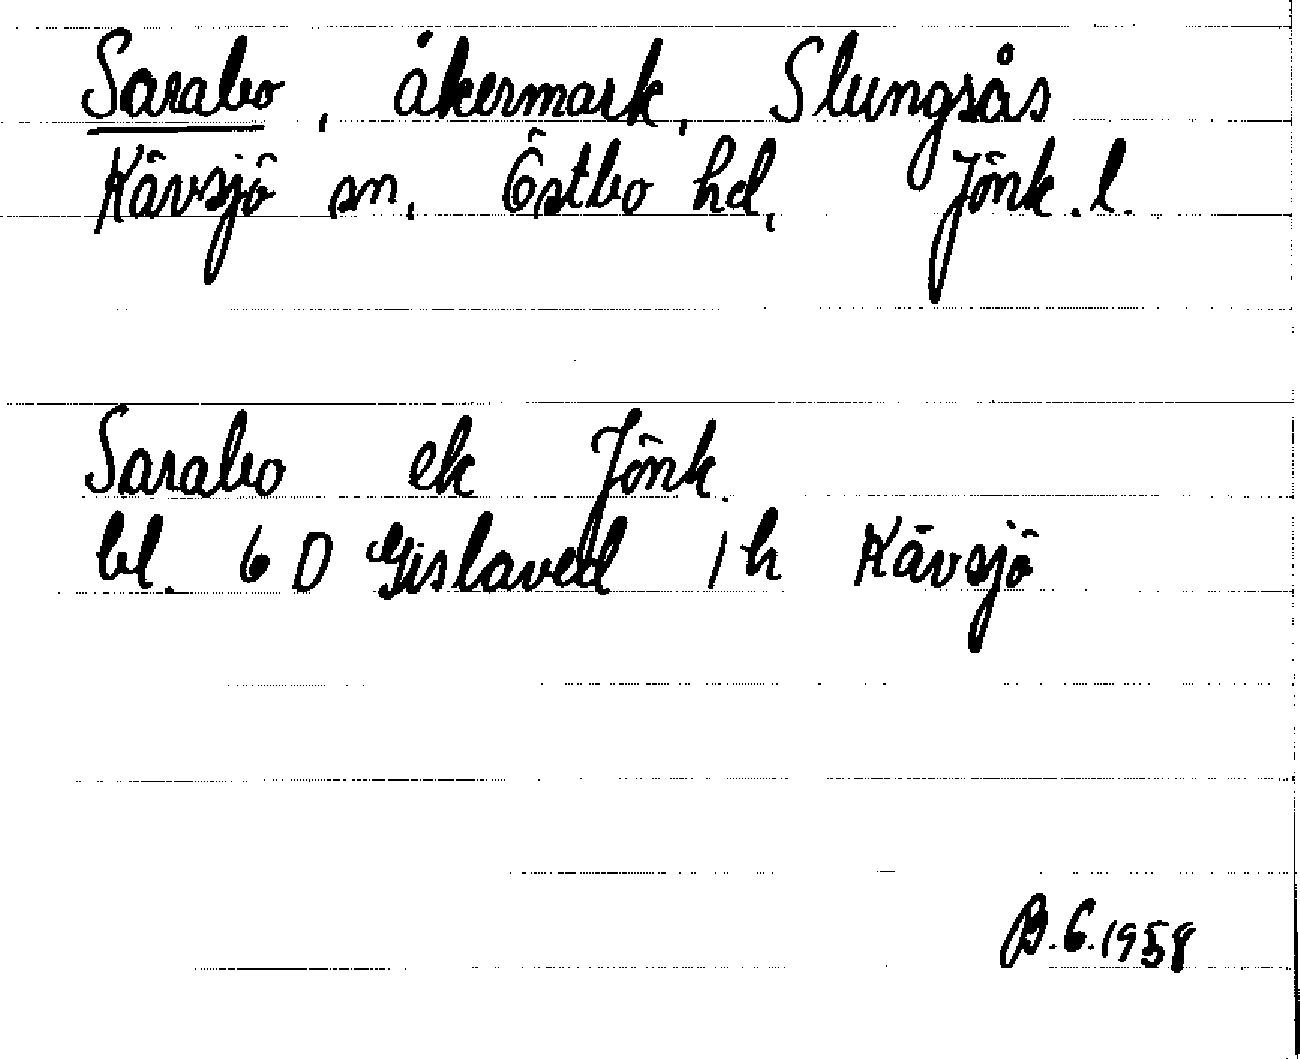 Sarabo, åkermark, Slungsås
Kävsjö sn. Östbo hd, Jönk.l.
Sarabo ek Jönk.
bl. 6 D Gislaved 1 h Kävsjö
B.G.1958